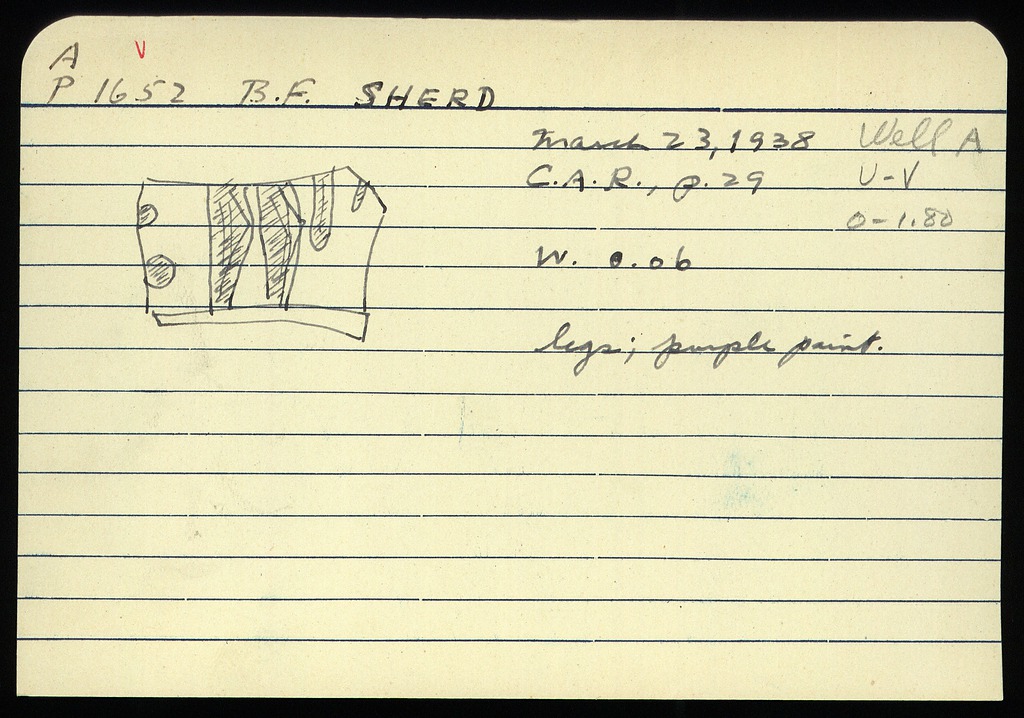 A V
P 1652 B.F. SHERD
March 23, 1938 Well A
C.A.R., p. 29 U-V
0-1.80
W. 0.06
legs; purple paint.